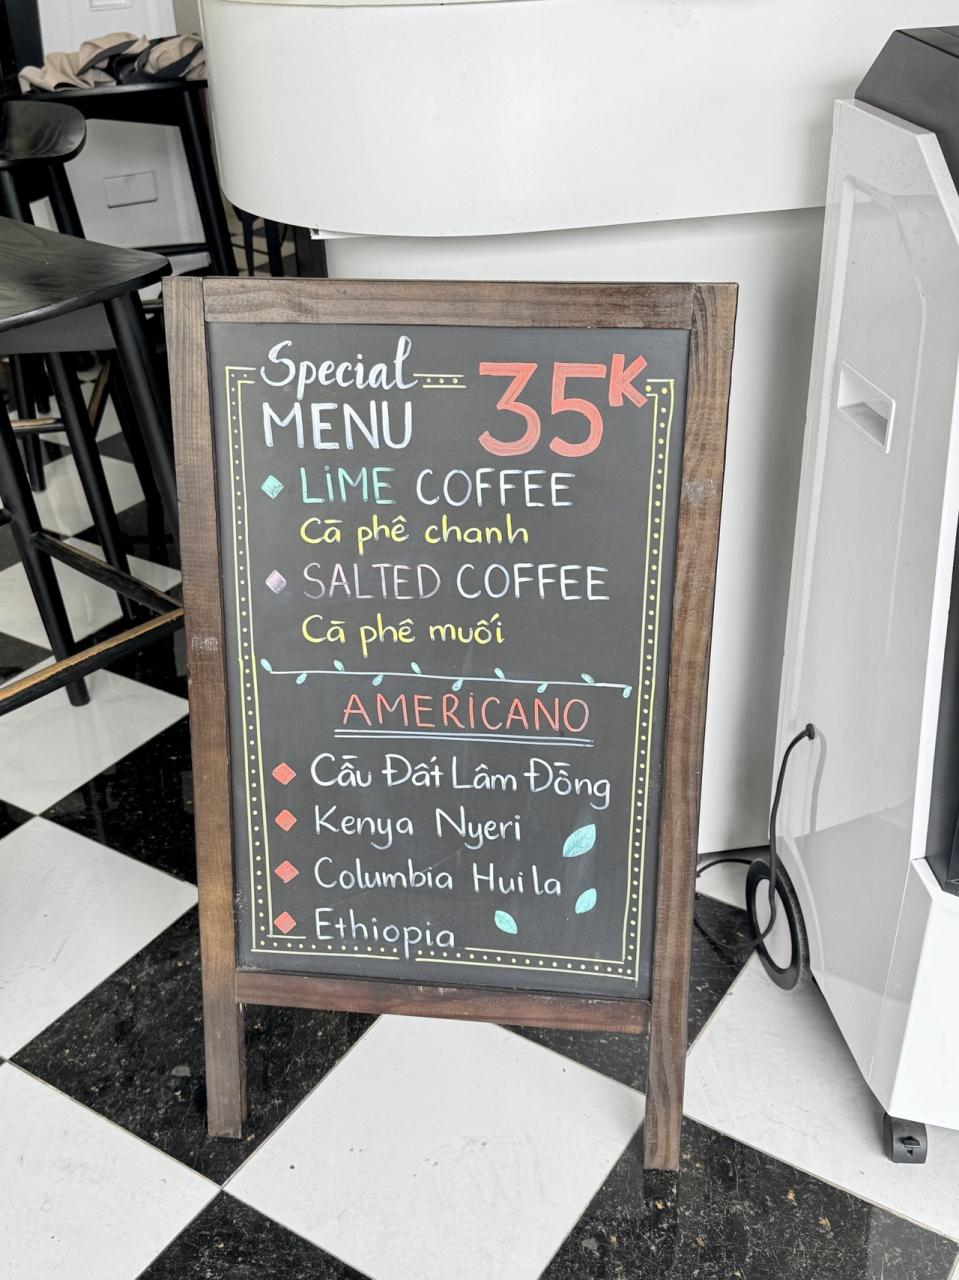 Special
MENU
35K
LIME COFFEE
Cà phê chanh
SALTED COFFEE
Cà phê muối
AMERICANO
Cầu Đất Lâm Đồng
Kenya Nyeri
Columbia Huila
Ethiopia